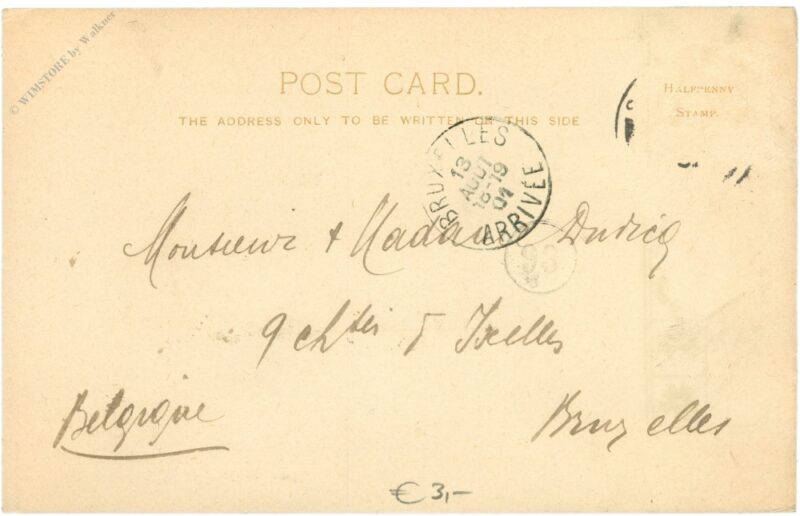 © WIMSTORE by Walkner
POST CARD.
HALFPENNY
STAMP.
THE ADDRESS ONLY TO BE WRITTEN ON THIS SIDE
BRUXELLES
13
AOUT
18-19
ARRIVÉE
Monsieur & Madame
93
9 chée d'Ixelles
Belgique
Bruxelles
€ 3,-